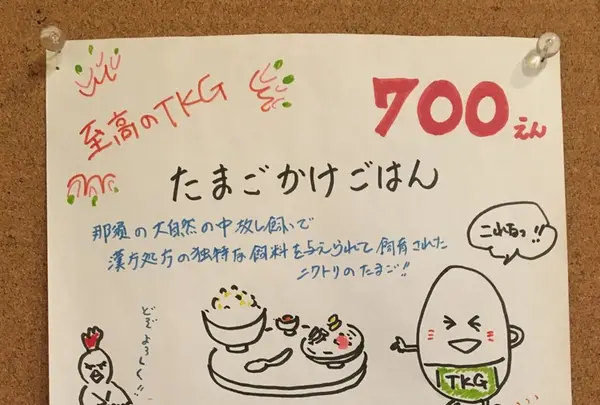 至高のTKG
700えん
たまごかけごはん
那須の大自然の中放し飼いで
漢方処方の独特な飼料を与えられて飼育された
ニワトリのたまご!!
どぞよろしく!!
TKG